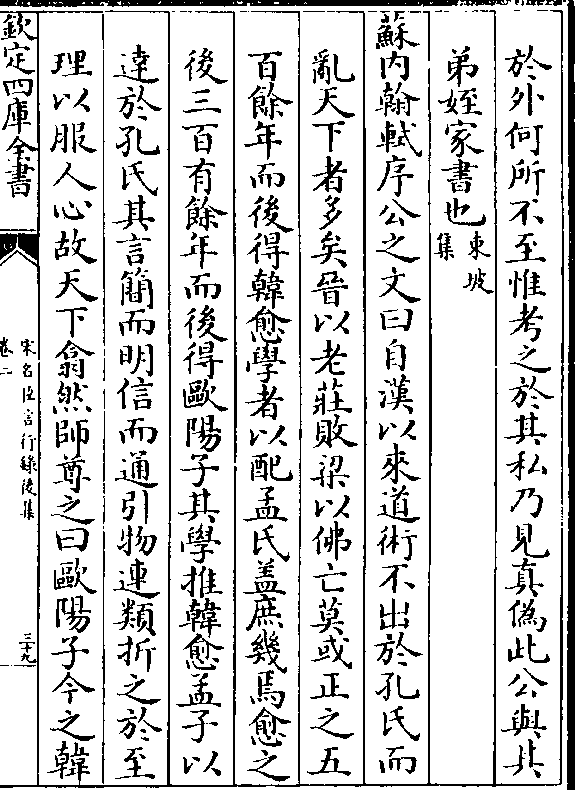 於外何所不至惟考之於其私乃見真偽此公與其
弟姪家書也東坡集
蘇内翰軾序公之文曰自漢以來道術不出於孔氏而
亂天下者多矣晉以老莊敗梁以佛亡莫或正之五
百餘年而後得韓愈學者以配孟氏盖庶幾焉愈之
後三百有餘年而後得歐陽子其學推韓愈孟子以
達於孔氏其言簡而明信而通引物連類折之於至
理以服人心故天下翕然師尊之曰歐陽子今之韓
欽定四庫全書
宋名臣言行錄後集
卷二
三十九